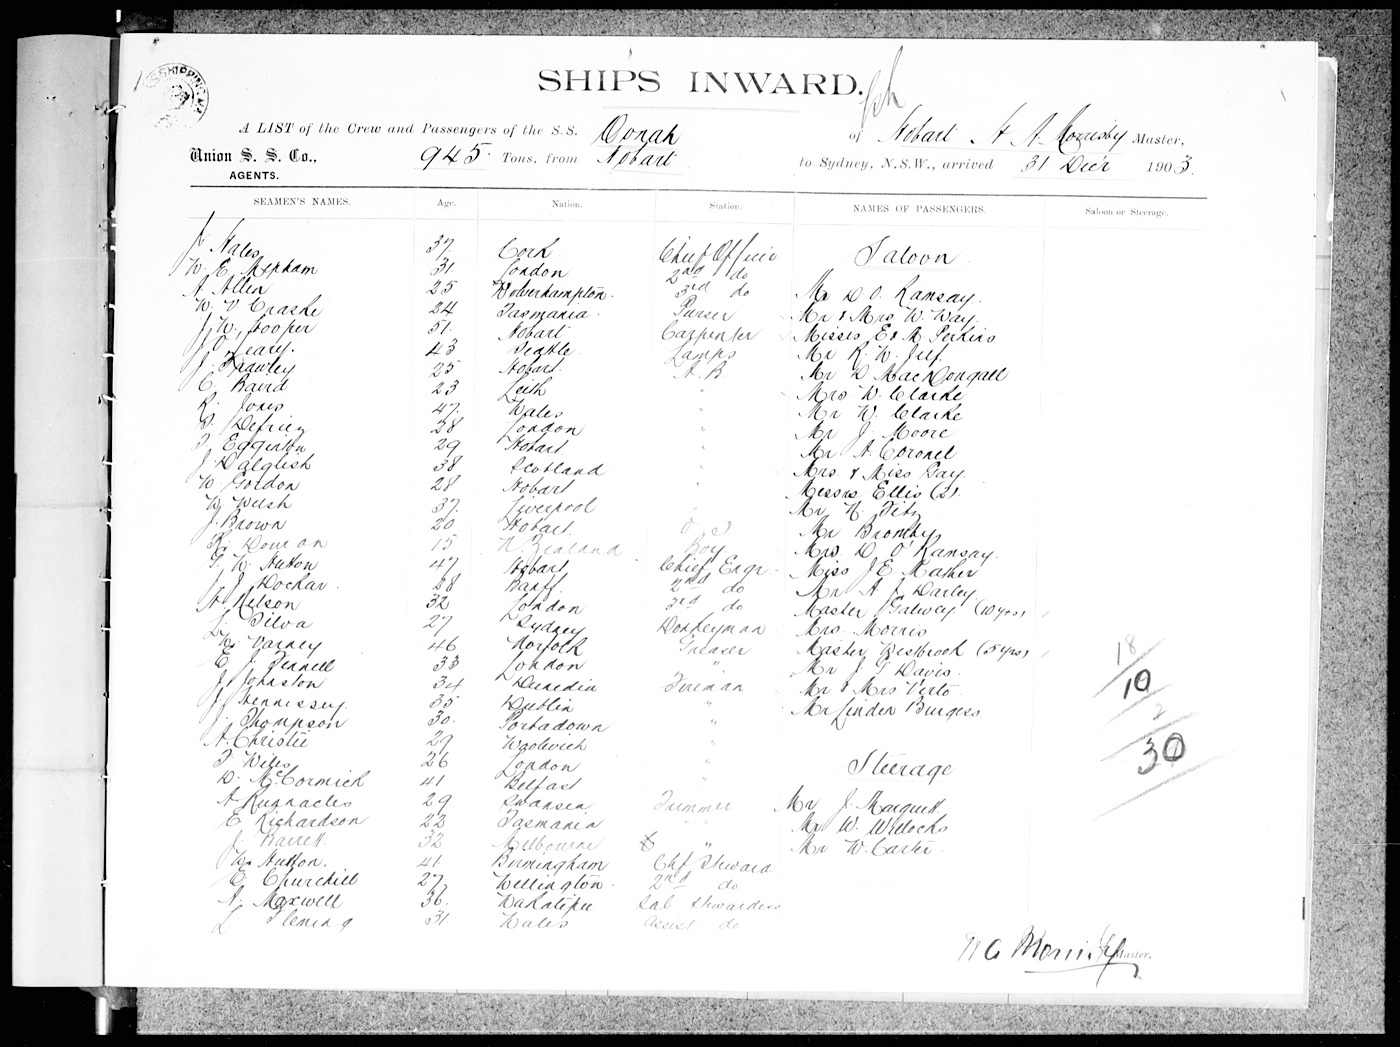 SHIPS INWARD.
A LIST of the Crew and Passengers of the S.S. Oonah of Hobart H A Morrisby Master,
Union S. S. Co., 945 Tons, from Hobart to Sydney, N.S.W., arrived 31 Decr 1903.
AGENTS.
SEAMEN'S NAMES. Age. Nation. Station. NAMES OF PASSENGERS. Saloon or Steerage.
Hales 37. Cork Chief Officer Saloon
W. E. Mepham 31. London 2nd do
A Allen 25 Wolverhampton. 3rd do Mr D O. Ramsay.
W. V. Crashe 24 Tasmania. Purser Mr & Mrs W. Way.
J. W. Hooper 51. Hobart Carpenter Misses E & M Perkins
J. O'Leary. 43 Seattle Lamps Mr R. W. Juf.
J. Frawley 25 Hobart A.B Mr D MacDougall
C. Baird 23 Leith " Mrs W. Clarke
R. Jones 47. Wales " Mr W. Clarke
Defriez 28 London " Mr J. Moore
T. Egginton 29 Hobart " Mr A. Coronel
J. Dalglish 38 Scotland " Mrs & Miss Gay.
W. Gordon 28 Hobart " Messrs Ellis (2).
W. Welsh 37. Liverpool " Mr H. Fitz
J. Brown 20 Hobart O.S Mr Bromby
Doman 15 N. Zealand Boy Mrs. D. O' Ramsay.
G. W. Hutton 47 Hobart Chief Engr. Miss J E Mather
J. J. Dochar. 28 Banff. 2nd do Mr A. J Darley
H. Nelson 32 London 3rd do Master Galwey (10 yrs)
J. Silva 27 Sydney Donkeyman Mrs. Morris
W. Varney 46 Norfolk Greaser Master Westbrook (5 yrs)
E. J. Fennell 33 London " Mr J. G Davis.
J. Johnston 34 Dunedin Fireman Mr & Mrs Verto.
J. Hennessy. 35 Dublin " Mr Linden Burgess
J. Thompson 30. Portadown "
A. Christie 29 Woolwich "
T Wiles 26 London " Steerage
D. McCormick 41 Belfast "
A. Runnacles 29 Swansea Trimmer Mr J. Marquett
E Richardson 22 Tasmania " Mr W. Willocks
J Barrett 32 Melbourne " Mr W. Carter.
W. Hutton. 41 Birmingham Chf Steward
E. Churchill 27, Wellington. 2nd do
N. Maxwell 36. Wakatipu Sal Stwardess
L. Fleming 31 Wales Assist do
18
10
2
30
H A Morrisby Master.